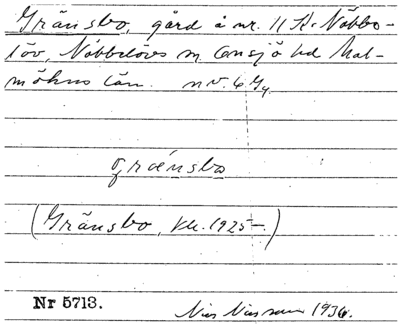 Gränsbo, gård å nr. 11 K. Nöbbe-
löv, Nöbbelövs sn. Onsjö hd Mal-
möhus län. nv. 6
grænsbo
(Gränsbo, kk. 1925-)
Nr 5713.
Nils Nilsson 1936.